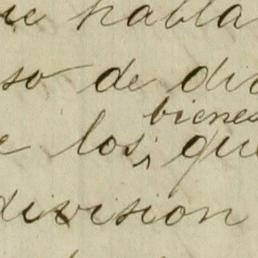 habla
so de di
bienes
los, que
division